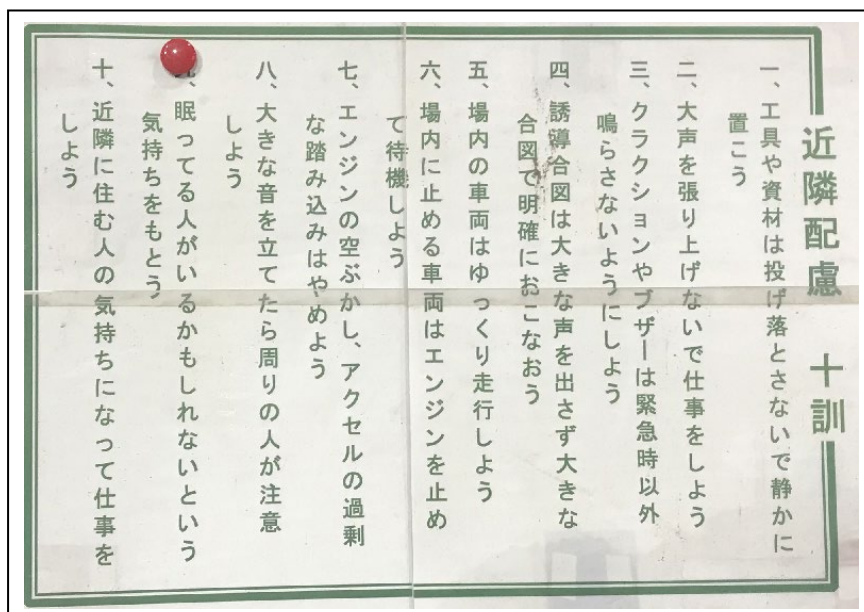 近隣配慮　十訓
一、工具や資材は投げ落とさないで静かに
置こう
二、大声を張り上げないで仕事をしよう
三、クラクションやブザーは緊急時以外
鳴らさないようにしよう
四、誘導合図は大きな声を出さず大きな
合図で明確におこなおう
五、場内の車両はゆっくり走行しよう
六、場内に止める車両はエンジンを止め
て待機しよう
七、エンジンの空ぶかし、アクセルの過剰
な踏み込みはやめよう
八、大きな音を立てたら周りの人が注意
しよう
、眠ってる人がいるかもしれないという
気持ちをもとう
十、近隣に住む人の気持ちになって仕事を
しよう